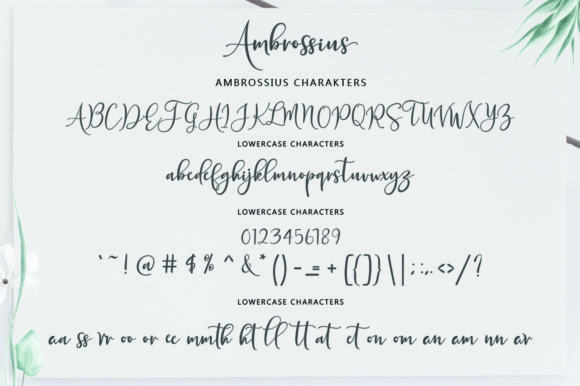 Ambrossius
AMBROSSIUS CHARAKTERS
ABCDEFGHIJKLMNOPQRSTUVWXYZ
LOWERCASE CHARACTERS
abcdefghijklmnopqrstuvwxyz
LOWERCASE CHARACTERS
0123456789
`~!@#$%^&*()-_=+[{]}\|;:,.<>/?
LOWERCASE CHARACTERS
aa ss rr oo or cc mm th ht ll tt at et on om an am nn ar